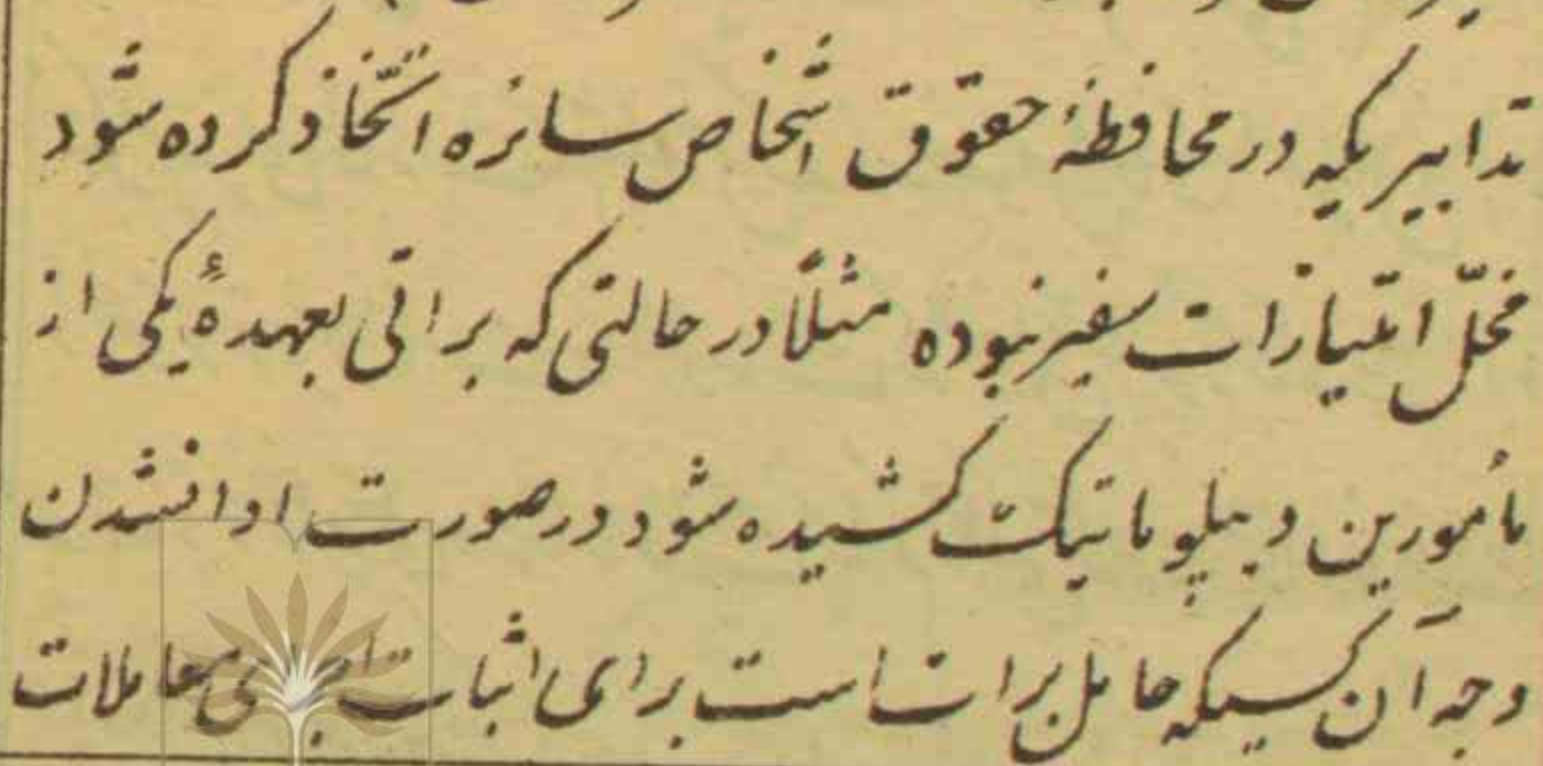 تدابیریکه در محافظهٔ حقوق اشخاص سائره اتّخاذ کرده شود
مخلّ امتیازات سفیر نبوده مثلًا در حالتی که براتی بعهدهٔ یکی از
مأمورین دیپلوماتیک کشیده شود در صورت ادا نشدن
وجه آن کسیکه حامل برات است برای اثبات معاملات